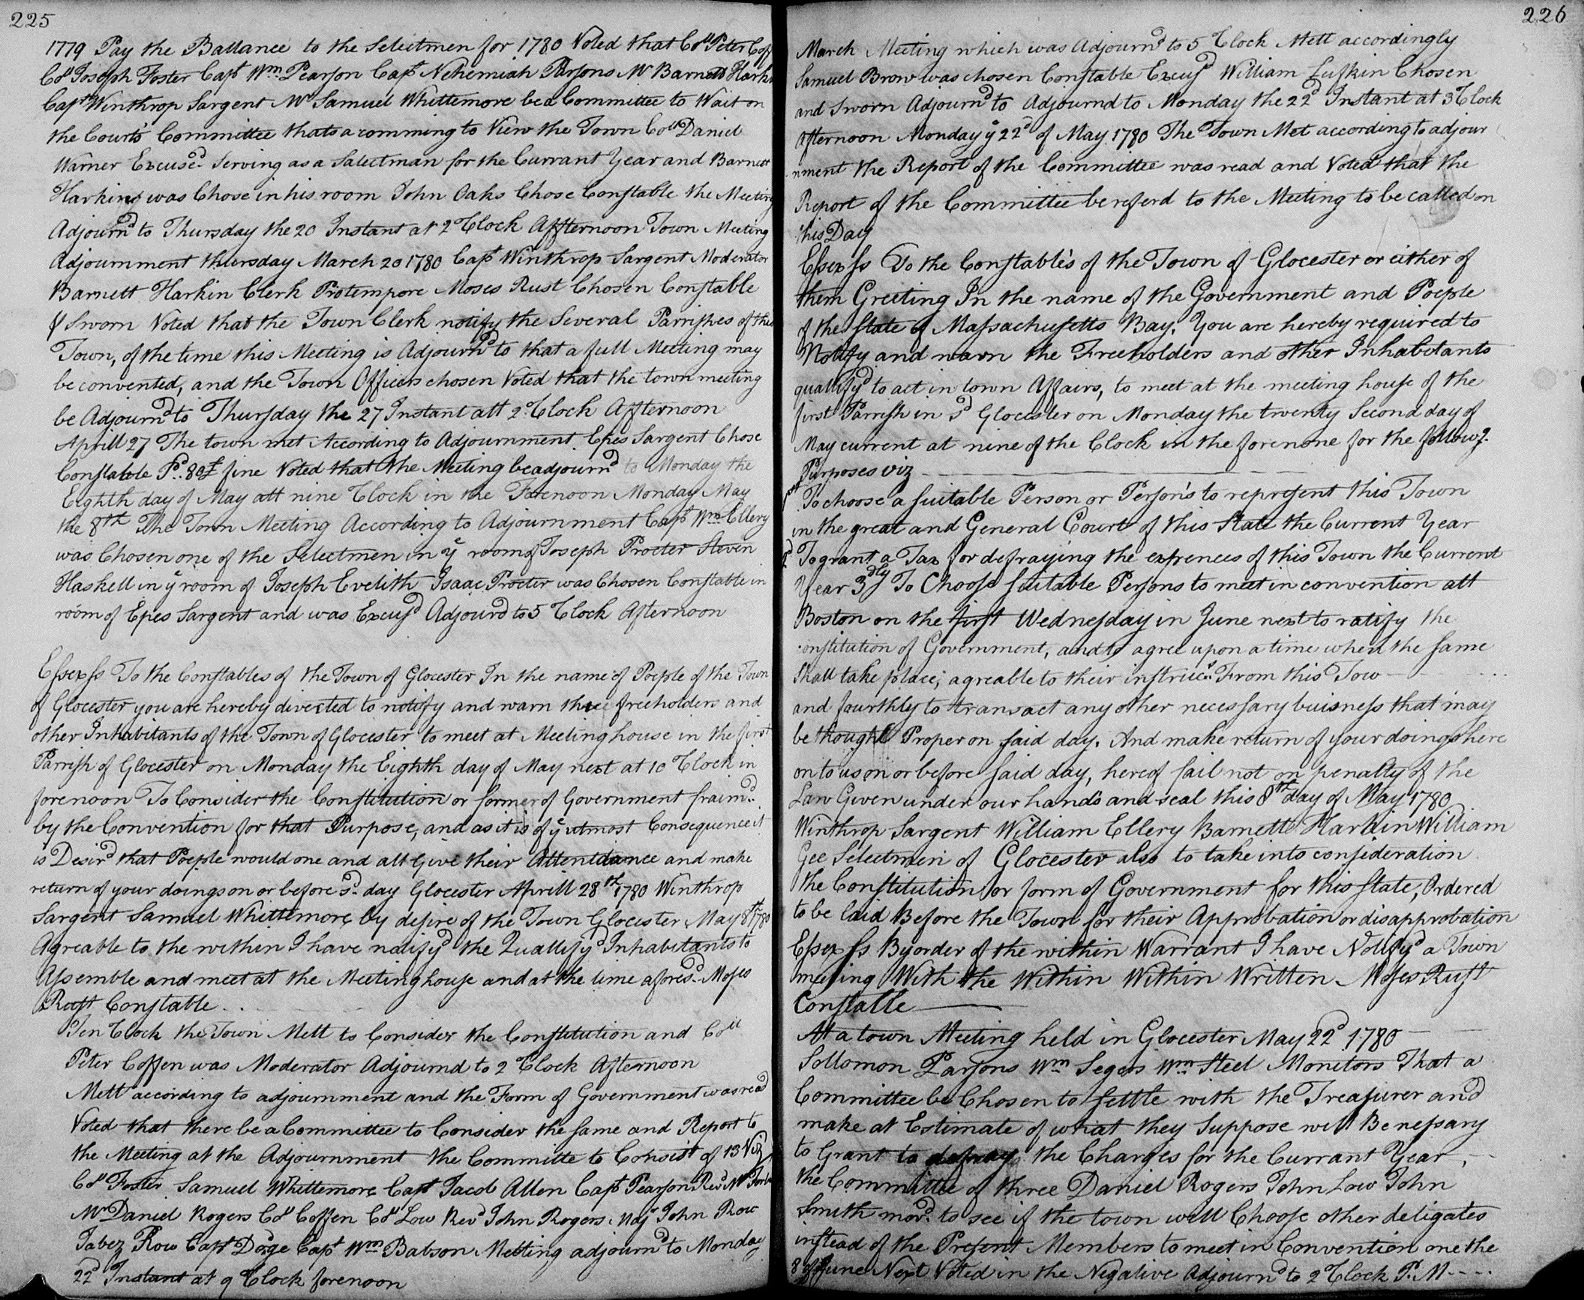 225
1779 Pay the Ballance to the Selectmen for 1780 Voted that Coll Peter Coff
Coll Joseph Foster Capt Wm Pearson Capt Nehemiah Parsons Mr Barnett Harkin
Capt Winthrop Sargent Mr Samuel Whittemore be a Committee to Wait on
the Courts Committee thats a comming to View the Town Coll Daniel
Warner Excused Serving as a Salectman for the Currant Year and Barnett
Harking was Chose in his room John Oaks Chose Constable the Meeting
Adjournd to Thursday the 20 Instant at 2 Clock Affternoon Town Meeting
Adjournment thursday March 20 1780 Capt Winthrop Sargent Moderator
Barnett Harkin Clerk Protempore Moses Rust Chosen Constable
& Sworn Voted that the Town Clerk notify the Several Parrishes of this
Town, of the time this Meeting is Adjournd to that a full Meeting may
be convented, and the Town Officers chosen Voted that the town meeting
be Adjournd to Thursday the 27 Instant att 2 Clock Afternoon
Aprill 27 The town met According to Adjournment Epes Sargent Chose
Constable Pd 80£ fine Voted that the Meeting be adjournd to Monday the
Eighth day of May att nine Clock in the Forenoon Monday May
the 8th The Town Meeting According to Adjournment Capt Wm Ellery
was Chosen one of the Selectmen in ye room of Joseph Procter Steven
Haskell in ye room of Joseph Evelith Isaac Procter was Chosen Constable in
room of Epes Sargent and was Excusd Adjournd to 5 Clock Afternoon
Essex ss To the Constables of the Town of Glocester In the name of Poeple of the Town
of Glocester you are hereby directed to notify and warn the freeholders and
other Inhabitants of the Town of Glocester to meet at Meeting house in the first
Parrish of Glocester on Monday the Eighth day of May next at 10 Clock in
forenoon To Consider the Constitution or former of Government fraimd
by the Convention for that Purpose, and as it is of ye utmost Consequence it
is Desird that Poeple would one and all Give their Attentdance and make
return of your doings on or before sd day Glocester Aprill 28th 1780 Winthrop
Sargent Samuel Whittemore by desire of the Town Glocester May 8th 1780
Agreable to the within I have notifyd the Quallifyd Inhabitants to
Assemble and meet at the Meetinghouse and at the time aforesd Moses
Rust Constable
Ten Clock the Town Mett to Consider the Constitution and Coll
Peter Coffen was Moderator Adjournd to 2 Clock Afternoon
Mett according to adjournment and the Form of Government was read
Voted that there be a Committee to Consider the same and Report to
the Meeting at the Adjournment the Committe to Consist of 13 Viz
Coll Foster Samuel Whittemore Capt Jacob Allen Capt Pearson Revd Mr Forbs
Mr Daniel Rogers Coll Coffen Coll Low Revd John Rogers Majr John Row
Jabez Row Capt Dorge Capt Wm Babson Meeting adjournd to Monday
22d Instant at 9 Clock forenoon
226
March Meeting which was Adjournd to 5 Clock Mett accordingly
Samuel Brow was chosen Constable Excusd William Lufkin Chosen
and Sworn Adjournd to Adjournd to Monday the 22d Instant at 3 Clock
Afternoon Monday ye 22d of May 1780 The Town Met according to adjour
nment the Report of the Committee was read and Voted that the
Report of the Committee be referd to the Meeting to be called on
this Day
Essex ss To the Constables of the Town of Glocester or either of
them Greeting In the name of the Government and Poeple
of the State of Massachusetts Bay. You are hereby required to
Notify and warn the Freeholders and other Inhabitants
qualifyd to act in town Affairs, to meet at the meeting house of the
first Parrish in sd Glocester on Monday the twenty Second day of
May current at nine of the Clock in the forenone for the followg
Purposes viz
To choose a suitable Person or Persons to represent this Town
in the great and General Court of this State the Current Year
To grant a Tax for defraying the expences of this Town the Current
Year 3dly To Choose suitable Persons to meet in convention att
Boston on the first Wednesday in June next to ratify the
onstitution of Government, and to agree upon a time when the same
shall take place, agreable to their instrucs From this Tow
and fourthly to transact any other necessary buisness that may
be thought Proper on said day. And make return of your doings here
on to us on or before said day, hereof fail not on penalty of the
Law Given under our hands and seal this 8th day of May 1780
Winthrop Sargent William Ellery Barnett Harkin William
Gee Selectmen of Glocester also to take into consideration
the Constitution or form of Government for this State, Ordered
to be laid Before the Town for their Approbation or disapprobation
Essex ss By order of the within Warrant I have Notifyd a Town
meeting With the Within Within Written Moses Rust
Constable
At a town Meeting held in Glocester May 22d 1780
Sollomon Parsons Wm Segers Wm Steel Monitors That a
Committee be Chosen to settle with the Treasurer and
make at Estimate of what they suppose will Be nessary
to Grant to defray the Charges for the Currant Year,
the Committee of three Daniel Rogers John Low John
Smith mod to see if the town will Choose other deligates
instead of the Present Members to meet in Convention one the
8 of June Next Voted in the Negative Adjournd to 2 Clock P.M